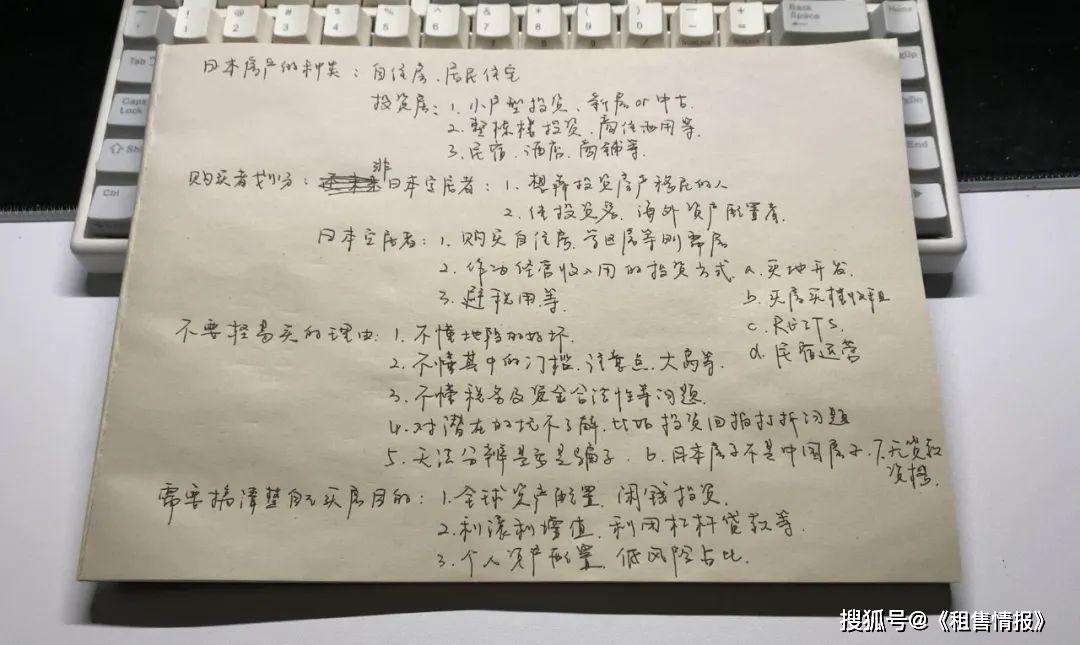 日本房产的种类：自住房、居民住宅
投资房：1. 小户型投资、新房or中古.
2. 整栋楼投资、商住两用等.
3. 民宿、酒店、商铺等.
购买者划分：非日本定居者：1. 想靠投资房产移民的人
2. 纯投资客、海外资产配置者.
日本定居者：1. 购买自住房、学区房等刚需房
2. 作为经营收入用的投资方式. a. 买地开发.
3. 避税用等. b. 买房买楼收租
c. REITS.
d. 民宿运营
不要轻易买的理由：1. 不懂地段的好坏.
2. 不懂其中的门槛、注意点、大局等.
3. 不懂税务及资金合法性等问题.
4. 对潜在的坑不了解、比如投资回报打折问题
5. 无法分辨是否是骗子. 6. 日本房子不是中国房子. 7. 无贷款资格.
需要搞清楚自己买房目的：1. 全球资产配置、闲钱投资.
2. 利滚利增值、利用杠杆贷款等.
3. 个人资产配置、低风险占比.
Back Space
Home
Tab
Caps Lock
Shi
Ctrl
PgUp
PgDn
End
搜狐号@《租售情报》